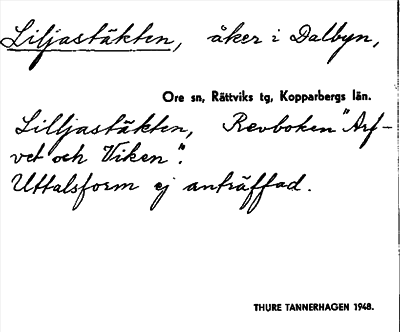 Liljastäkten, åker i Dalbyn,
Ore sn, Rättviks tg, Kopparbergs län.
Lilljastäkten, Revboken "Arf-
vet och Viken".
Uttalsform ej anträffad.
THURE TANNERHAGEN 1948.